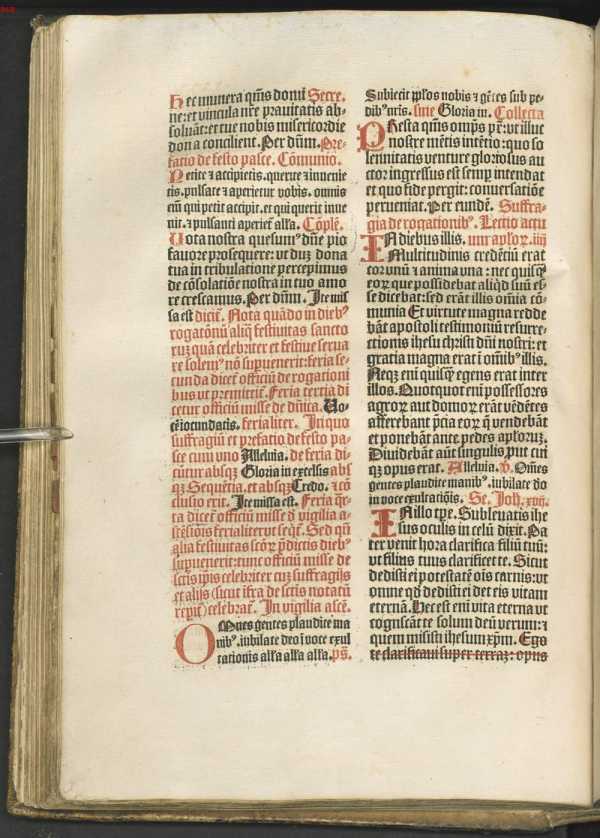 Hec munera qm̄s domī Secre.
ne: et vincula nr̄e prauitatis ab-
soluāt: et tue nobis misericordie
dona concilient. Per dūm. Pre-
fatio de festo pasce. Cōmunio.
Petite ⁊ accipietis. querite ⁊ inuenie
tis. pulsate ⁊ aperietur vobis. omnis
eīn qui petit accipit. et qui querit inue
nit. ⁊ pulsanti aperiet̄ alľa. Cōplē.
Vota nostra quesum⁹ dn̄e pio
fauore prosequere: vt duʒ dona
tua in tribulatione percepimus
de cōsolatiōe nostra in tuo amo
re crescamus. Per dn̄m. Ite mis
sa est dicit̄. Nota quādo in dieb⁹
rogatōnū aliq̄ festiuitas sancto
ruʒ quā celebriter et festiue serua
re solem⁹ nō supuenerit: feria se-
cunda dicet̄ officiū de rogationi
bus vt premittit̄. Feria tertia di
cetur officiū misse de dn̄ica. Vo-
cē iocunditatis. ferialiter. In quo
suffragiū et prefatio de festo pa-
sce cum vno Alleluia. de feria di-
cūtur absqʒ Gloria in excelsis abs
qʒ Sequētia. et absqʒ Credo. ⁊ cō
clusio erit. Ite missa est. Feria q̄r-
ta dicet̄ officiū misse d̄ vigilia a-
scēsiōis ferialiter vt seqt̄. Sed qn̄
q̄lia festiuitas scōꝝ p̄dictis dieb⁹
supuenerit: tunc officiū misse de
scīis ip̄is celebriter cuʒ suffragijs
et alijs (sicut īfra de scīis notatū
repit̄) celebrat̄. In vigilia ascē.
Omnes gentes plaudite ma
nib⁹. iubilate deo ī voce exul
tationis alľa alľa alľa. ps̄.
Subiecit pplōs nobis ⁊ gētes sub pe-
dib⁹ nr̄is. sine Gloria in. Collecta
Presta qm̄s omp̄s pr̄: vt illuc
nostre mētis intētio: quo so
lennitatis venture gloriosus au
ctor ingressus est semp̄ intendat
et quo fide pergit: conuersatiōe
perueniat. Per eundē. Suffra-
gia de rogationib⁹. Lectio actu
In diebus illis. um aplōꝝ. iiij
Multitudinis credētiū erat
cor vnū ⁊ anima vna: nec quisq̄
eoꝝ que possidebat aliqd suū es-
se dicebat: sed erāt illis om̄ia cō-
munia Et virtute magna redde
bāt apostoli testimoniū resurre-
ctionis ihesu christi dn̄i nostri: et
gratia magna erat ī om̄ib⁹ illis.
Neqʒ enī quisq̄ egens erat inter
illos. Quotquot enī possessores
agroꝝ aut domoꝝ erāt vēdētes
afferebant p̄cia eoꝝ q̄ vendebāt
et ponebāt ante pedes aploꝝuʒ.
Diuidebāt aūt singulis put cui
qʒ opus erat. Alleluia. ꝟ. Om̄es
gentes plaudite manib⁹. iubilate do
in voce exultatiōis. Se. Joh̄. xvij.
In illo tp̄e. Subleuatis ihe
sus oculis in celū dixit. Pa
ter venit hora clarifica filiū tuū:
vt filius tuus clarificet te. Sicut
dedisti ei potestatē ois carnis: vt
omne qd̄ dedisti ei det eis vitam
eternā. Hec est enī vita eterna vt
cognoscāt te solum deū verum: ⁊
quem misisti ihesum xp̄m. Ego
te clarificaui super terraʒ: opus